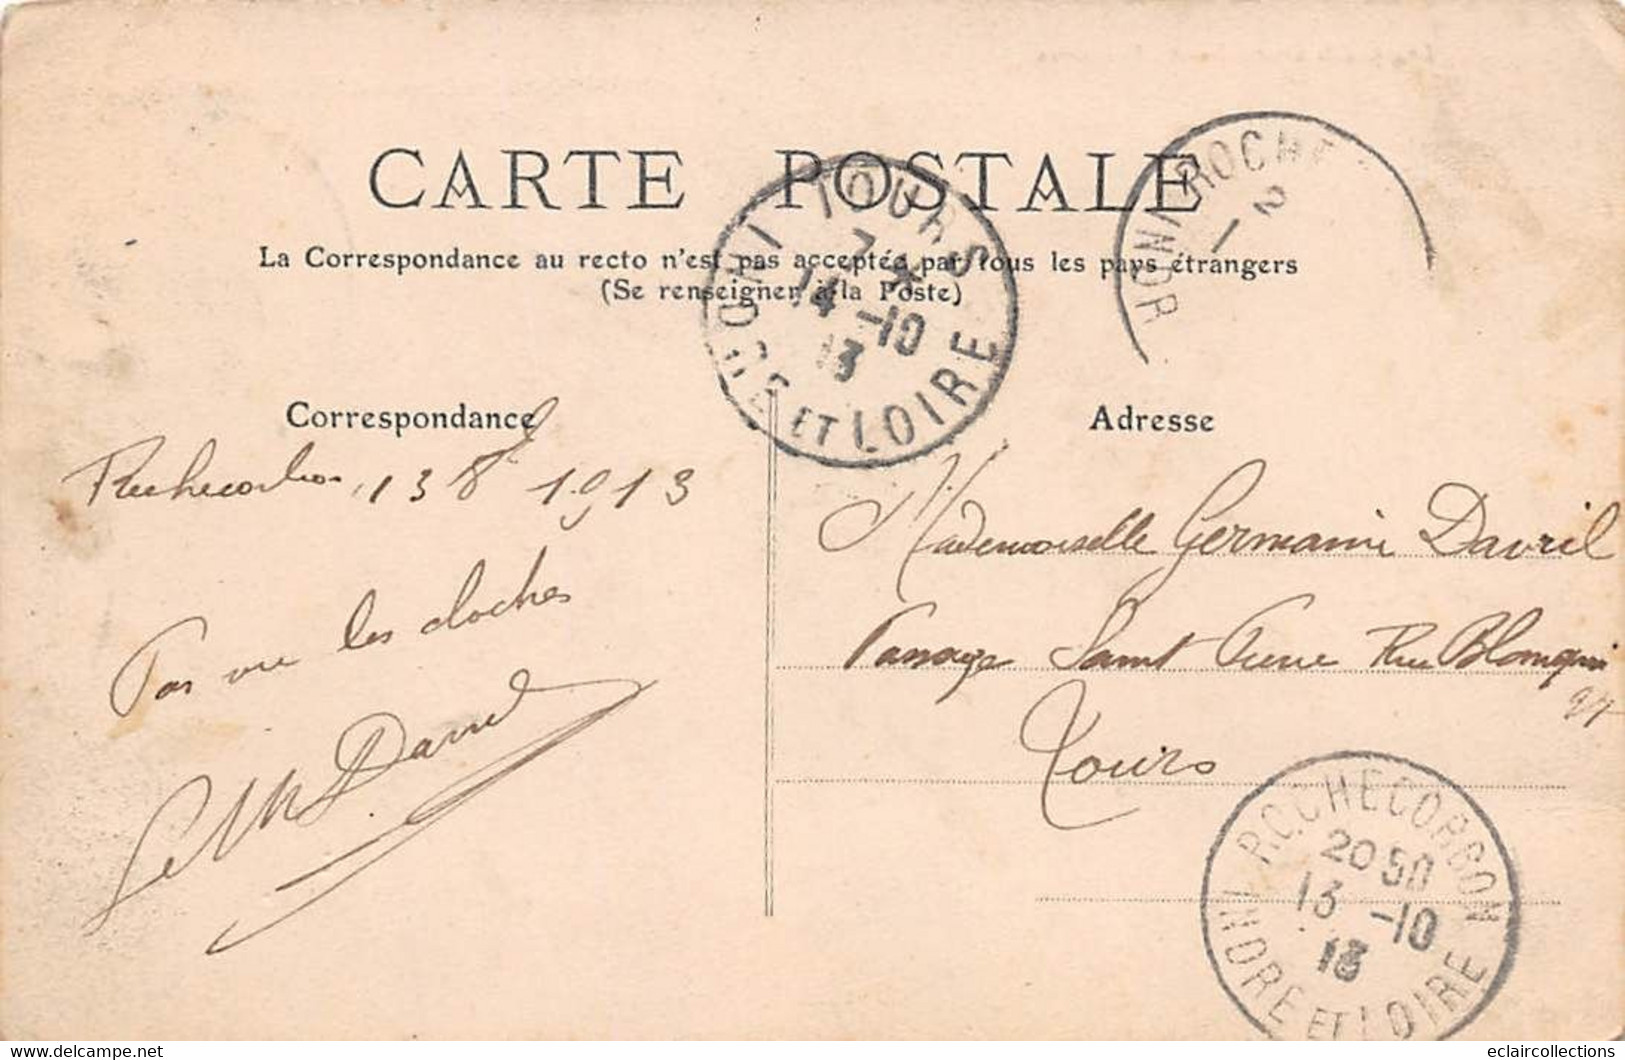 CARTE POSTALE
La Correspondance au recto n'est pas acceptée par tous les pays étrangers
(Se renseigner à la Poste)
TOURS
7 *
14 -10
13
INDRE ET LOIRE
ROCHE
2
1
INDR
Correspondance
Rochecorbon, 13 8 1913
Pas vu les cloches
Davril
Adresse
Mademoiselle Germaine Davril
Passage Saint Pierre Rue Blanqui
Tours
ROCHECORBON
20 50
13 -10
13
INDRE ET LOIRE
eclaircollections
© delcampe.net